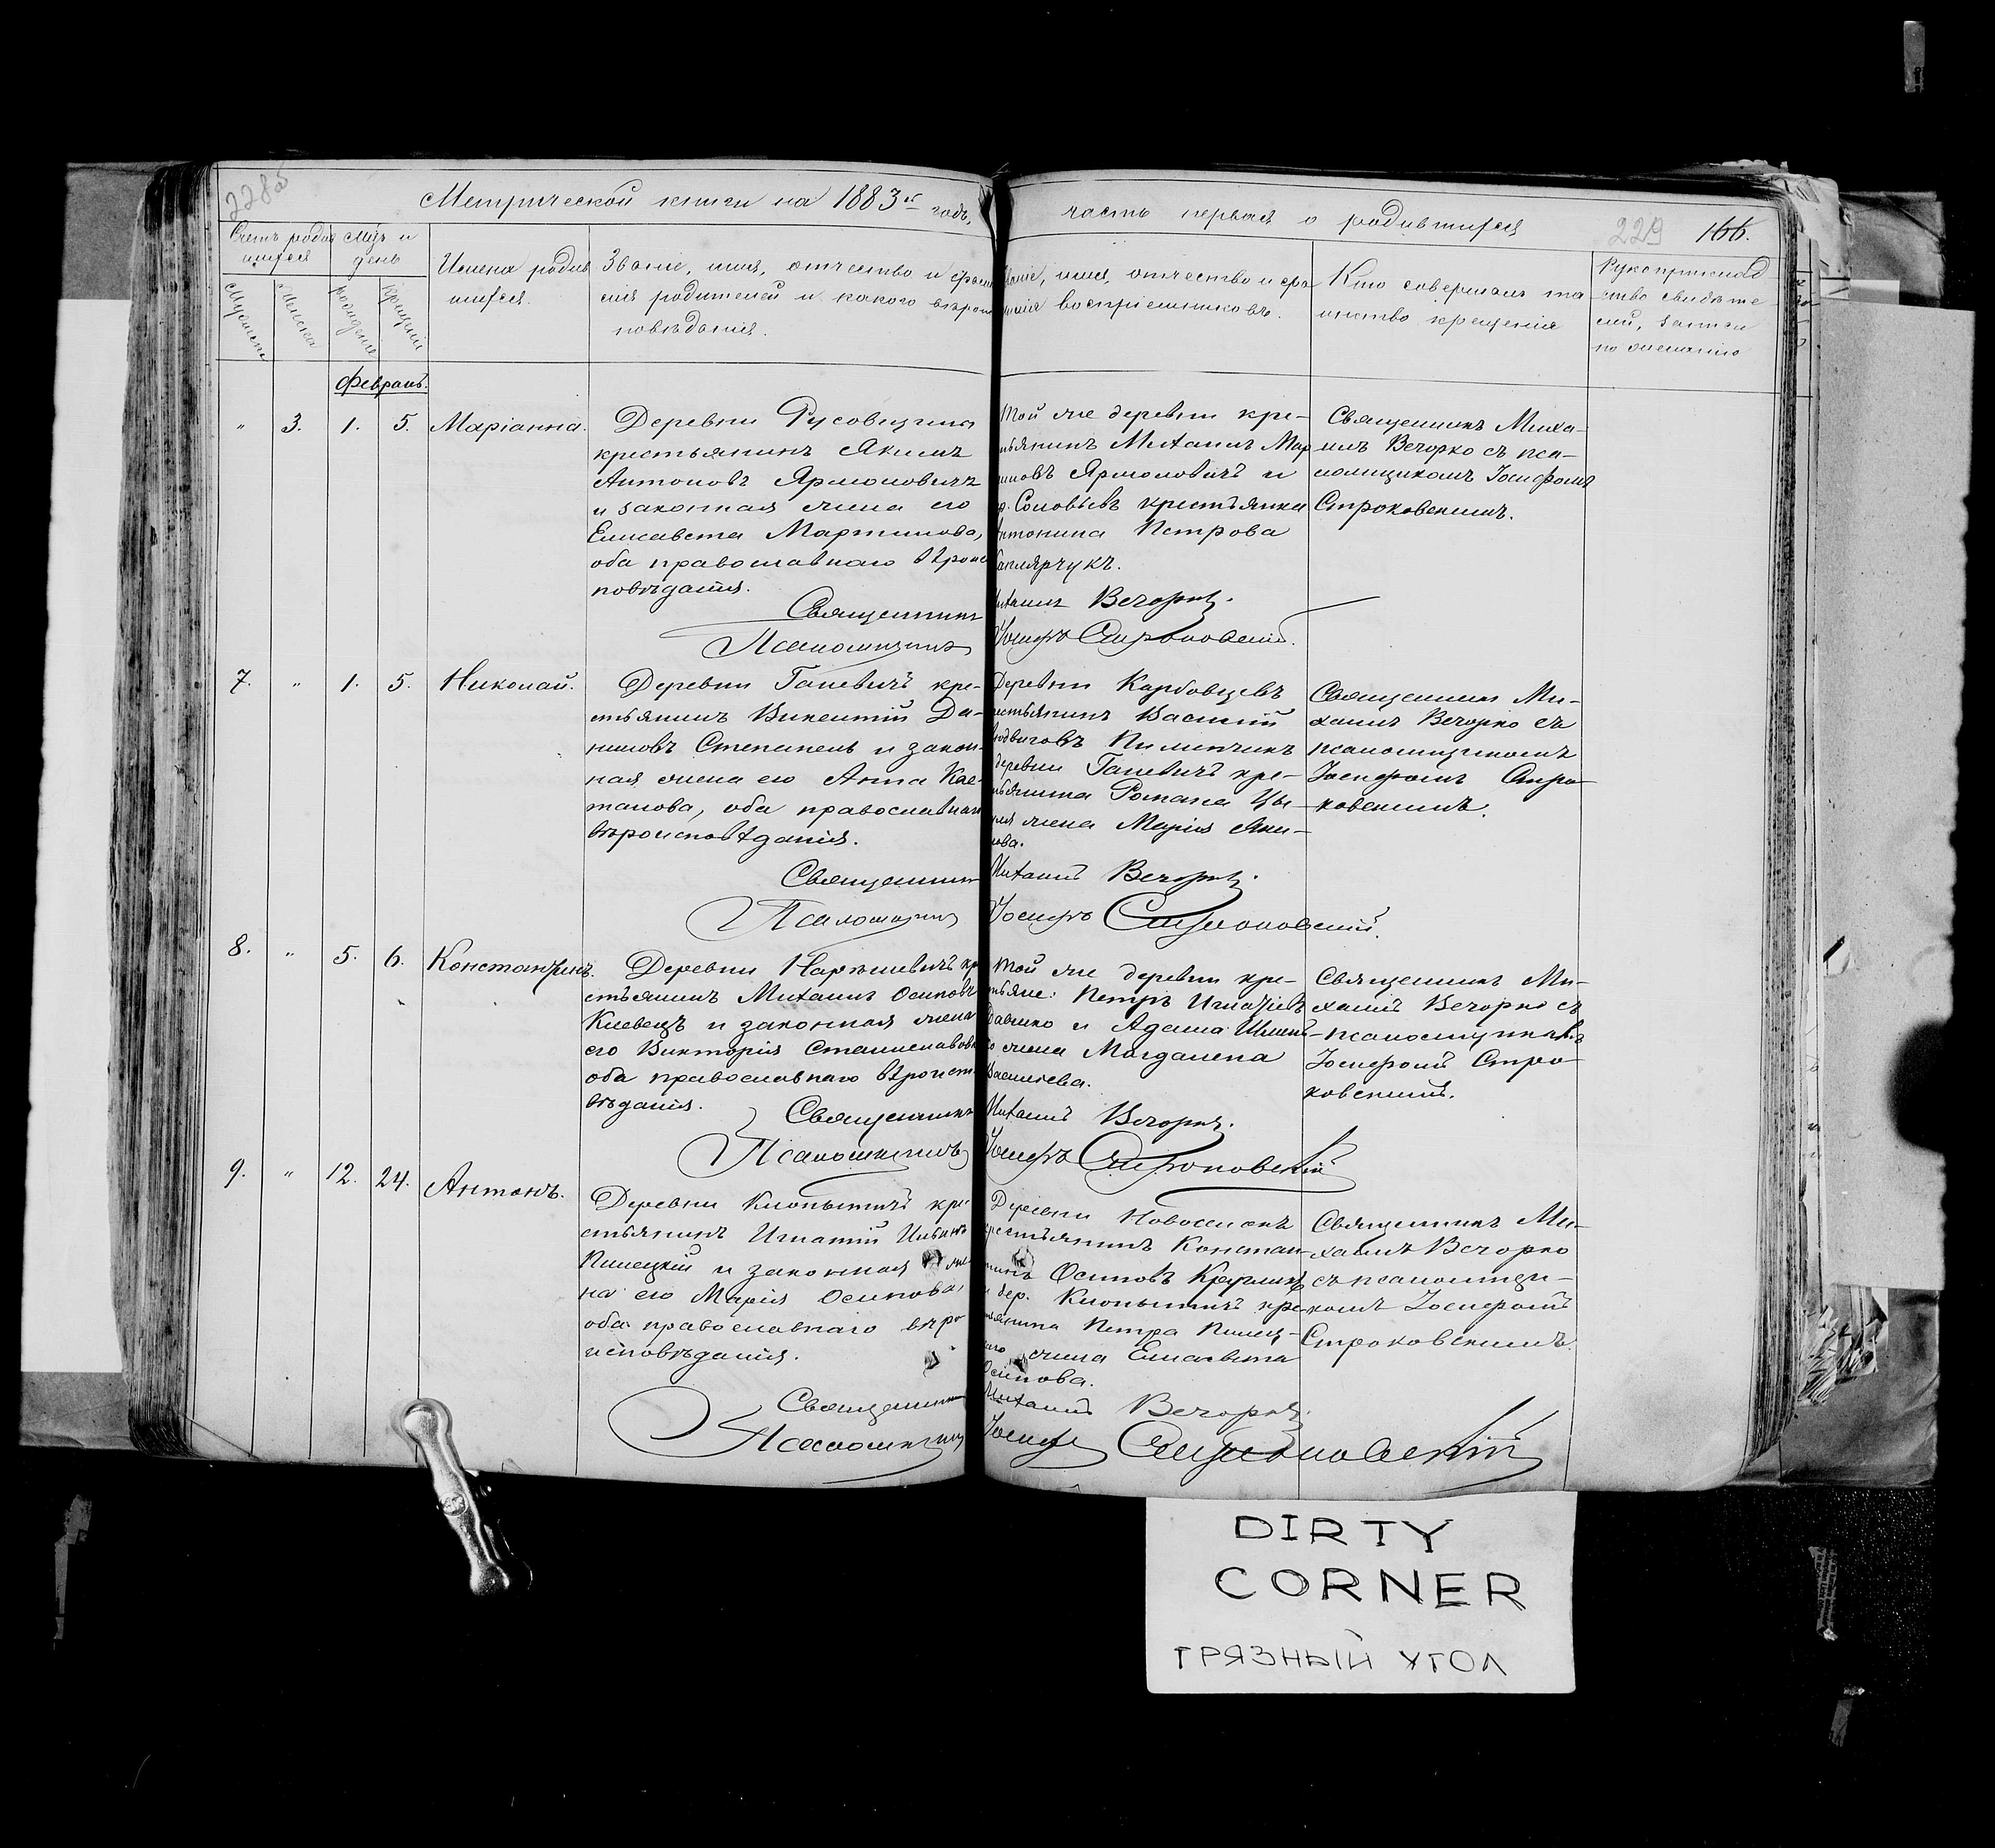 228об
Метрической книги на 1883й годъ,
часть первая о родившихся
229 166.
Счетъ родившихся
Мѣс. и день
Имена родившихся.
Званіе, имя, отчество и фами
лія родителей и какого вѣро
повѣданія.
Званіе, имя, отчество и фа
милія воспріемниковъ.
Кто совершалъ та
инство крещенія
Рукоприклад
ство свидѣте
лей, записи
по желанію
Мужеска
Женска
рожденіе
крещеніе
Февраль.
" 3. 1. 5. Маріанна.
Деревни Русовщина
крестьянинъ Якимъ
Антоновъ Ярмоловичъ
и законная жена его
Елисавета Мартинова,
оба православнаго вѣроис
повѣданія.
Священникъ
Псаломщикъ
Той же деревни кре-
стьянинъ Михаилъ Мар
тиновъ Ярмоловичъ и
д. Соловьевъ крестьянка
Антонина Петрова
Михаилъ Вечорко.
Іосифъ Строковскій.
Священникъ Миха-
илъ Вечорко съ пса-
ломщикомъ Іосифомъ
Строковскимъ.
7. " 1. 5. Николай.
Деревни Ганевичъ кре-
стьянинъ Викентій Да-
ниловъ Степанецъ и закон-
ная жена его Анна Кае-
танова, оба православнаго
вѣроисповѣданія.
Священникъ
Псаломщикъ
Деревни Карбовцевъ
крестьянинъ Василій
Людвиговъ Пилипчикъ
деревни Ганевичъ кре-
стьянина Романа Цы
жена Марія Яки-
мова.
Михаилъ Вечорко.
Іосифъ Строковскій.
Священникъ Ми-
хаилъ Вечорко съ
псаломщикомъ
Іосифомъ Стро-
ковскимъ.
8. " 5. 6. Константинъ.
Деревни Нарѣшевичъ кре
стьянинъ Михаилъ Осиповъ
Киевецъ и законная жена
его Викторія Станиславова
оба православнаго вѣроиспо
вѣданія.
Священникъ
Псаломщикъ
Той же деревни кре-
стьяне: Петръ Игнатіевъ
и Адама
жена Магдалена
Василева.
Михаилъ Вечорко.
Іосифъ Строковскій
Священникъ Ми-
хаилъ Вечорко съ
псаломщикомъ
Іосифомъ Стро-
ковскимъ.
9. " 12. 24. Антонъ.
Деревни Клопытичъ кре
стьянинъ Игнатій Ивановъ
Пилецкій и законная же-
на его Марія Осипова,
оба православнаго вѣро
исповѣданія.
Священникъ
Псаломщикъ
Деревни Новоселокъ
крестьянинъ Констан-
тинъ Осиповъ
и дер. Клопытичъ кре-
стьянина Петра Пилец-
каго жена Елисавета
Осипова.
Михаилъ Вечорко.
Іосифъ Строковскій
Священникъ Ми-
хаилъ Вечорко
съ псаломщи-
комъ Іосифомъ
Строковскимъ.
DIRTY
CORNER
ГРЯЗНЫЙ УГОЛ